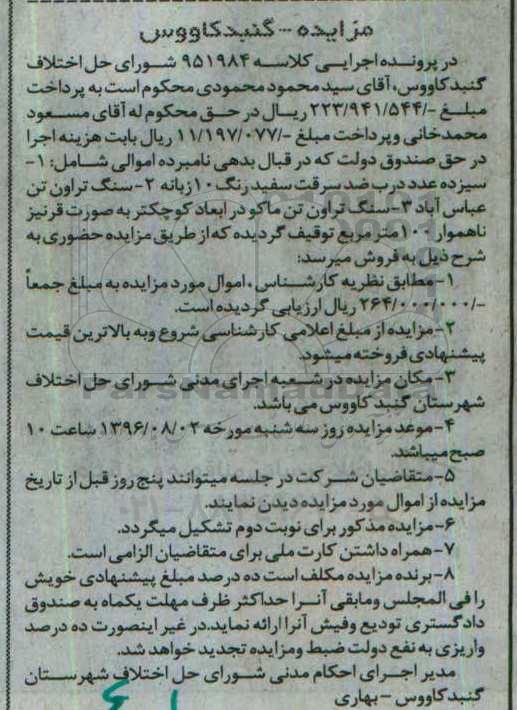 مزایده - گنبدکاووس
در پرونده اجرایی کلاسه ۹۵۱۹۸۴ شورای حل اختلاف
گنبد کاووس، آقای سید محمود محمودی محکوم است به پرداخت
مبلغ -/۲۲۳/۹۴۱/۵۴۴ ریال در حق محکوم له آقای مسعود
محمدخانی و پرداخت مبلغ -/۱۱/۱۹۷/۰۷۷ ریال بابت هزینه اجرا
در حق صندوق دولت که در قبال بدهی نامبرده اموالی شامل: ۱-
سیزده عدد درب ضد سرقت سفید رنگ ۱۰ زبانه ۲- سنگ تراون تن
عباس آباد ۳- سنگ تراون تن ماکو در ابعاد کوچکتر به صورت قرنیز
ناهموار ۱۰۰ متر مربع توقیف گردیده که از طریق مزایده حضوری به
شرح ذیل به فروش میرسد:
۱- مطابق نظریه کارشناس، اموال مورد مزایده به مبلغ جمعاً
-/۲۶۴/۰۰۰/۰۰۰ ریال ارزیابی گردیده است.
۲- مزایده از مبلغ اعلامی کارشناسی شروع و به بالاترین قیمت
پیشنهادی فروخته میشود.
۳- مکان مزایده در شعبه اجرای مدنی شورای حل اختلاف
شهرستان گنبد کاووس می باشد.
۴- موعد مزایده روز سه شنبه مورخه ۱۳۹۶/۰۸/۰۲ ساعت ۱۰
صبح میباشد.
۵- متقاضیان شرکت در جلسه میتوانند پنج روز قبل از تاریخ
مزایده از اموال مورد مزایده دیدن نمایند.
۶- مزایده مذکور برای نوبت دوم تشکیل میگردد.
۷- همراه داشتن کارت ملی برای متقاضیان الزامی است.
۸- برنده مزایده مکلف است ده درصد مبلغ پیشنهادی خویش
را فی المجلس و مابقی آنرا حداکثر ظرف مهلت یکماه به صندوق
دادگستری تودیع و فیش آنرا ارائه نماید. در غیر اینصورت ده درصد
واریزی به نفع دولت ضبط و مزایده تجدید خواهد شد.
مدیر اجرای احکام مدنی شورای حل اختلاف شهرستان
گنبد کاووس - بهاری